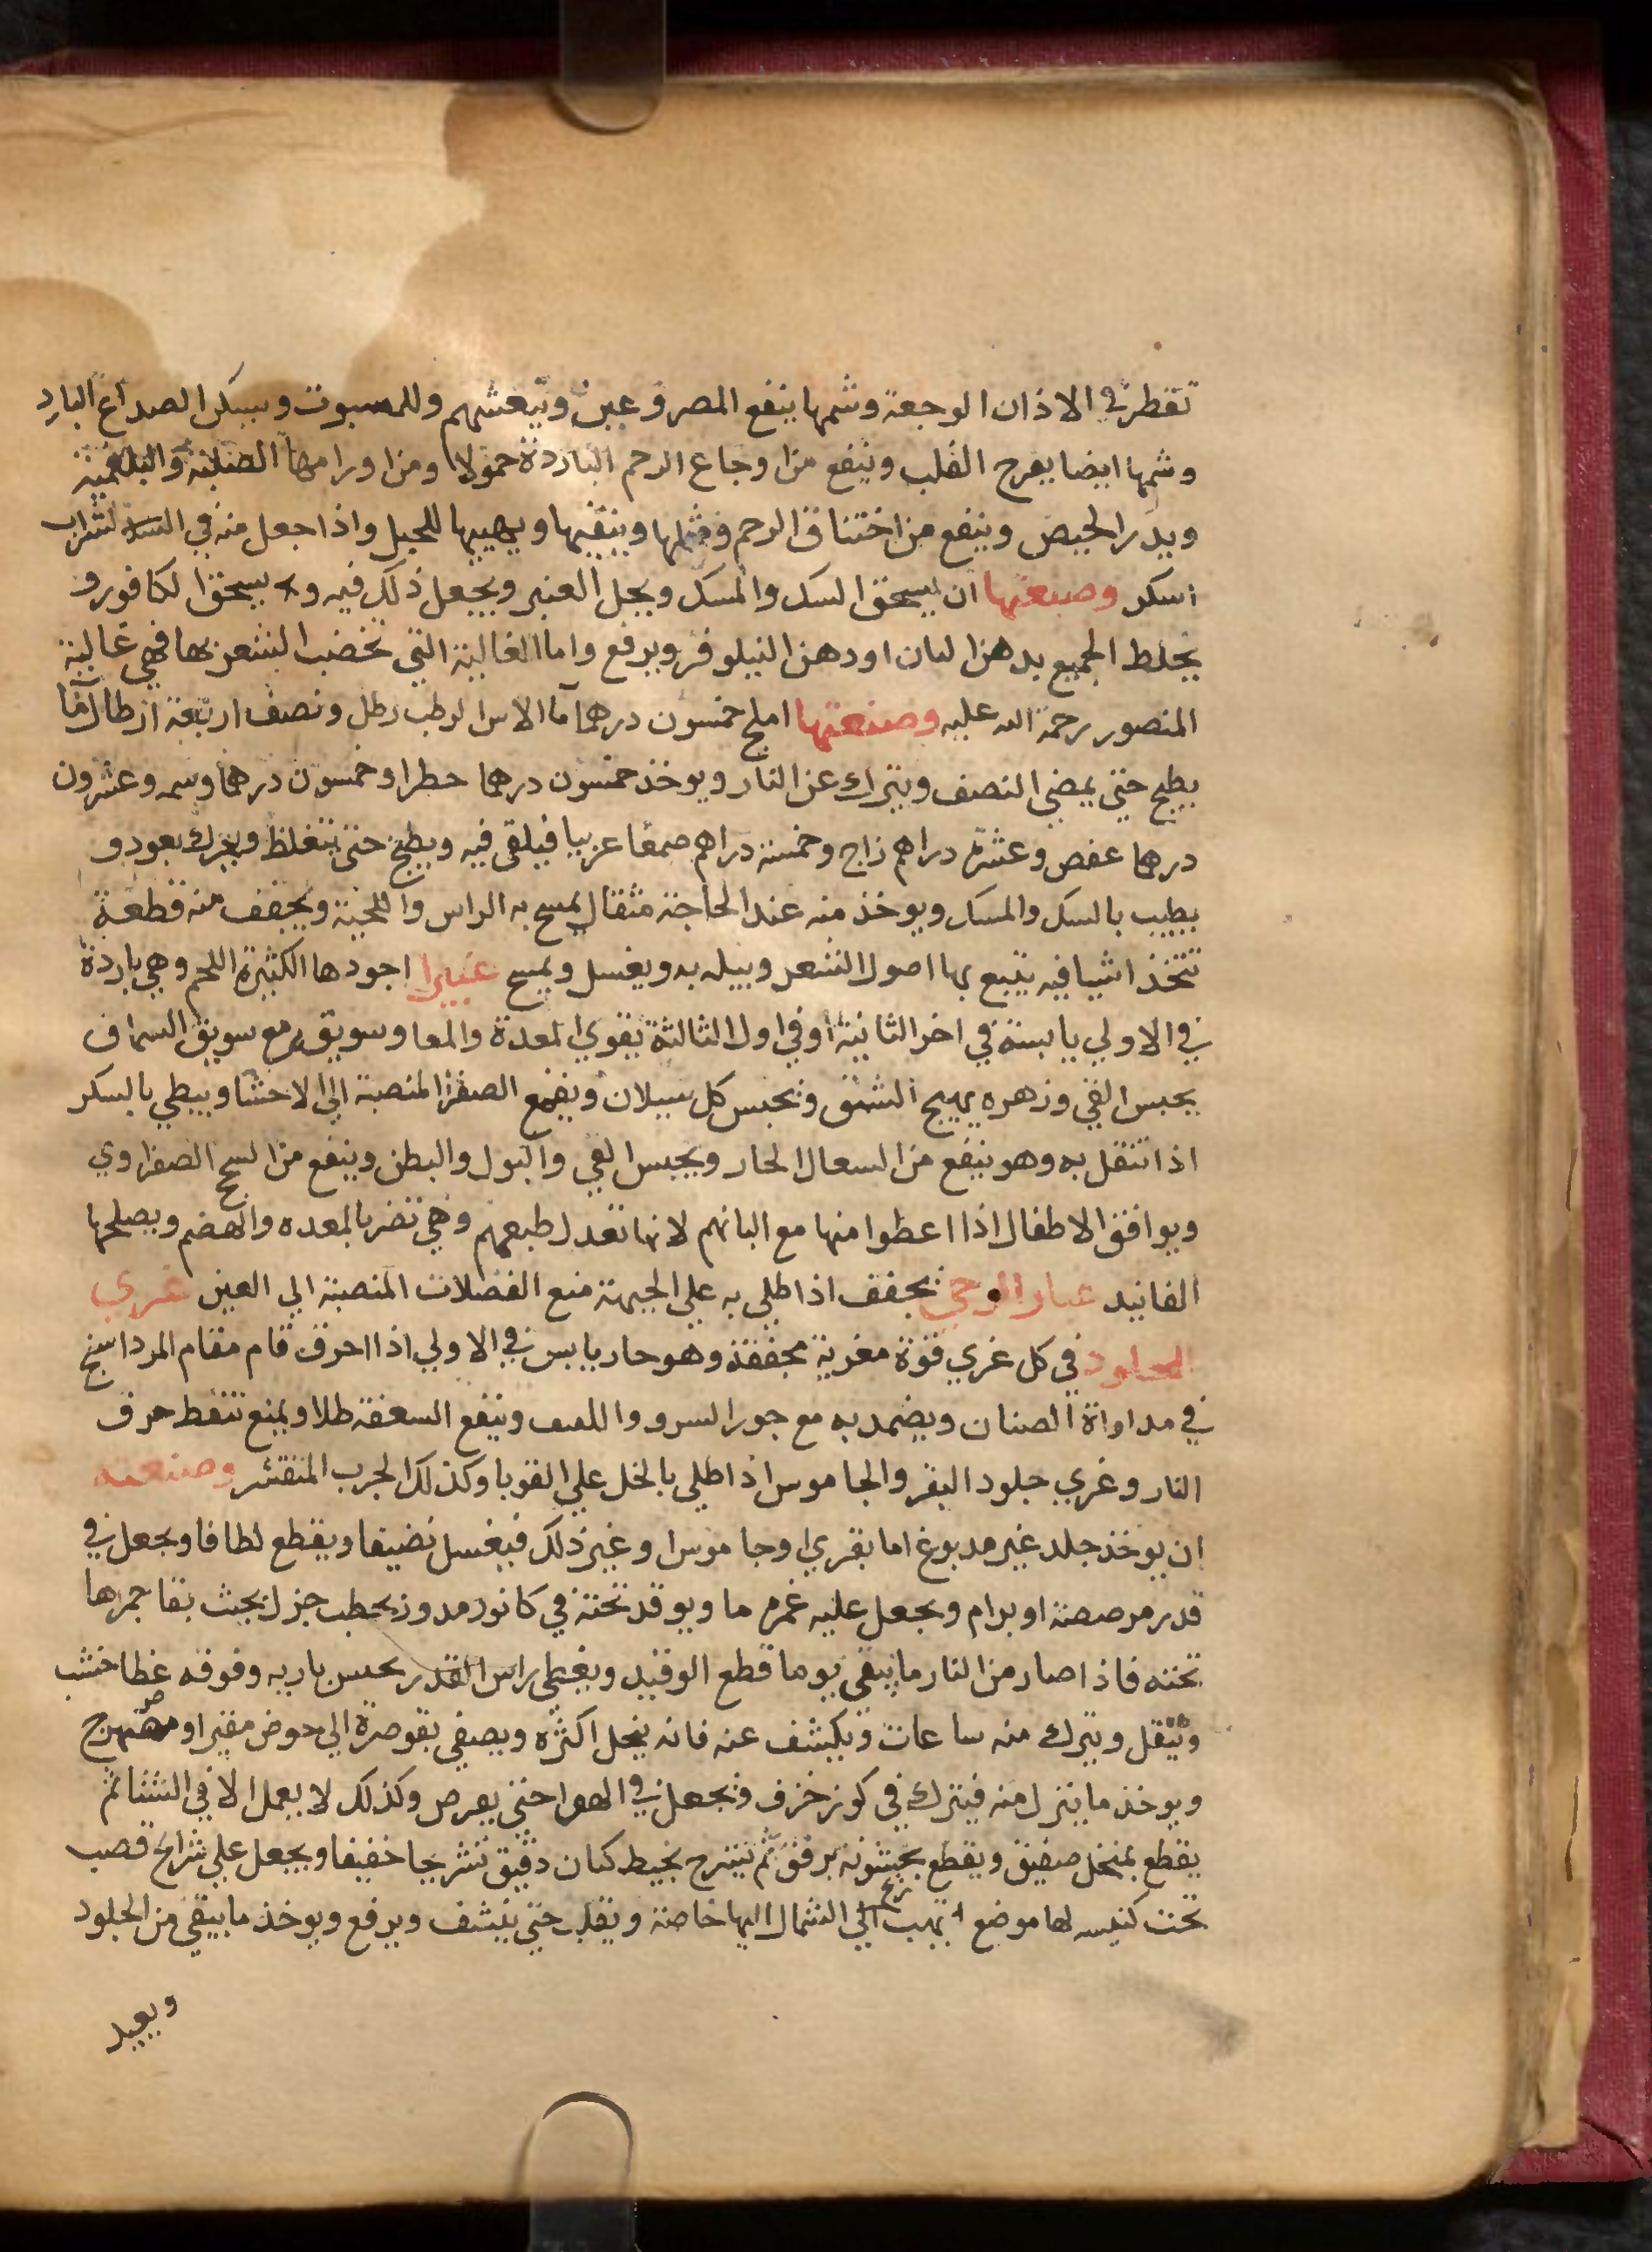 تقطر في الاذان الوجعة وشمها ينفع المصروعين وينعشهم وللمسبوت ويسكن الصداع البارد
وشمها ايضا يفرح القلب وينفع من اوجاع الرحم الباردة حمولا ومن اورامها الصلبة والبلغمية
ويدر الحيض وينفع من اختناق الرحم وينقيها ويهييها للحبل واذا جعل منه في الشراب
اسكر وصنعتها ان يسحق السك والمسك ويحل العنبر ويجعل ذلك فيه ولا يسحق الكافور و
يخلط الجميع بدهن البان او دهن النيلوفر ويرفع واما الغالية التي تخضب الشعر بها فهي غالية
المنصور رحمة الله عليه وصنعتها املج خمسون درهما ما الاس الرطب رطل ونصف اربعة ارطال ما
يطبخ حتى يمضي النصف ويترك عن النار ويوخذ خمسون درهما حطرا وخمسون درهما وسمه وعشرون
درهما عفص وعشرة دراهم زاج وخمسة دراهم صمغا عربيا فيلقى فيه ويطبخ حتى يتغلظ ويحرك بعود و
يطيب بالسك والمسك ويوخذ منه عند الحاجة مثقال يمسح به الراس واللحية ويجفف منه قطعة
تتخذ اشيافيه يتبع بها اصول الشعر ويبله به ويغسل ويمسح غبيرا اجودها الكثيرة اللحم وهي باردة
في الاولي يابسة في اخر الثانية او في اول الثالثة يقوي المعدة والمعا وسويقه مع سويق السماق
يحبس القي وزهره يهيج الشبق وتحبس كل سيلان ويقمع الصفرا المنصبة الي الاحشا ويبطي بالسكر
اذا تنقل به وهو ينفع من السعال الحار ويحبس القي والبول والبطن وينفع من السحج الصفراوي
ويوافق الاطفال اذا اعطوا منها مع البانهم لانها تعدل طبعهم وهي تضر بالمعده والهضم ويصلحها
الفانيد غبار الرحي يجفف اذا طلي به علي الجبهة منع الفضلات المنصبة الي العين غري
الجلود في كل غري قوة مغرية مجففة وهو حار يابس في الاولي اذا احرق قام مقام المرداسنج
في مداواة الصنان ويضمد به مع جوز السرو وينفع السعفة طلا ويمنع تنفط حرق
النار وغري جلود البقر والجاموس اذا طلي بالخل علي القوبا وكذلك الجرب المتقشر وصنعته
ان يوخذ جلد غير مدبوغ اما بقري او جاموس او غير ذلك فيغسل نضيفا ويقطع لطافا ويجعل في
قدر مرصصة او برام ويجعل عليه غمره ما ويوقد تحته في كانون مدور بحطب جزل بحيث بقا جمرها
تحته فاذا صار من النار ما يبقى يوما قطع الوقيد ويغطي راس القدر باريه وفوقه غطا خشب
ويثقل ويترك منه ساعات ويكشف عنه فانه ينحل اكثره ويصفي بقوصرة الي حوض مقير او مصهرج
ويوخذ ما ينزل منه فيترك في كوز خزف ويجعل في الهوا حتى يقرص وكذلك لا يعمل الا في الشتا ثم
يقطع بمنخل صفيق ويقطع برفق ثم يشرح بخيط كتان دقيق تشريحا خفيفا ويجعل علي شرايح قصب
تحت لها موضع تهب ريح الشمال اليها خاصة ويقلب حتى ينشف ويرفع ويوخذ ما يبقى من الجلود
ويعيد